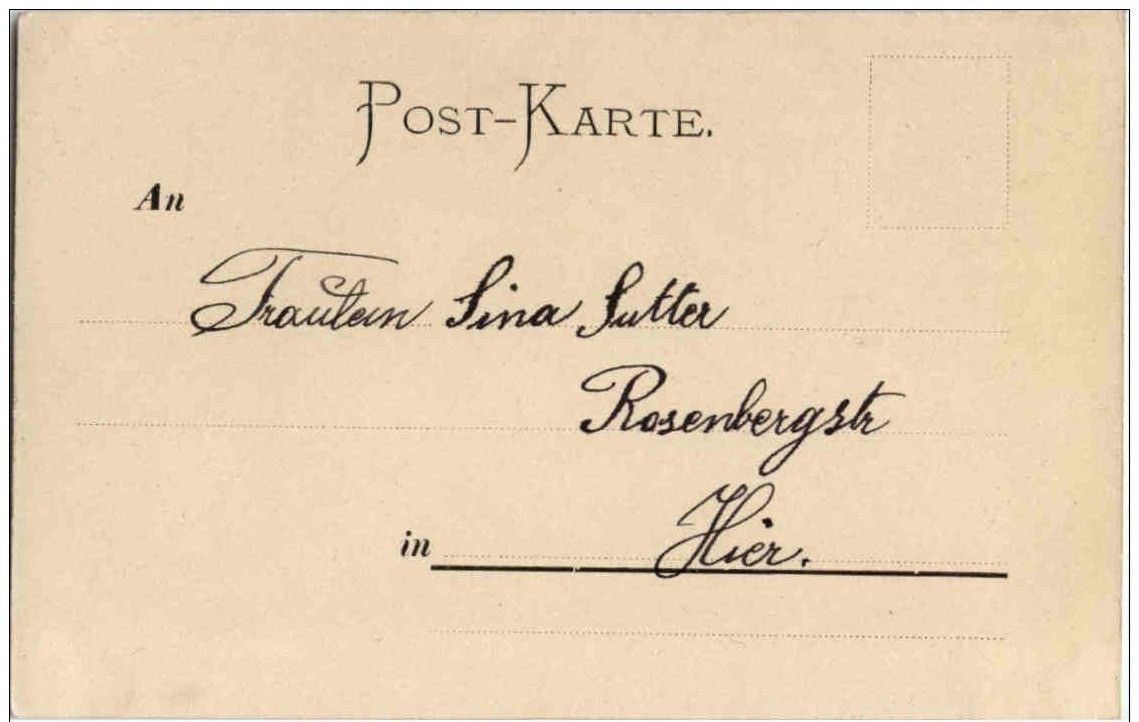 POST-KARTE.
An
Fräulein Lina Sutter
Rosenbergstr
in Hier.